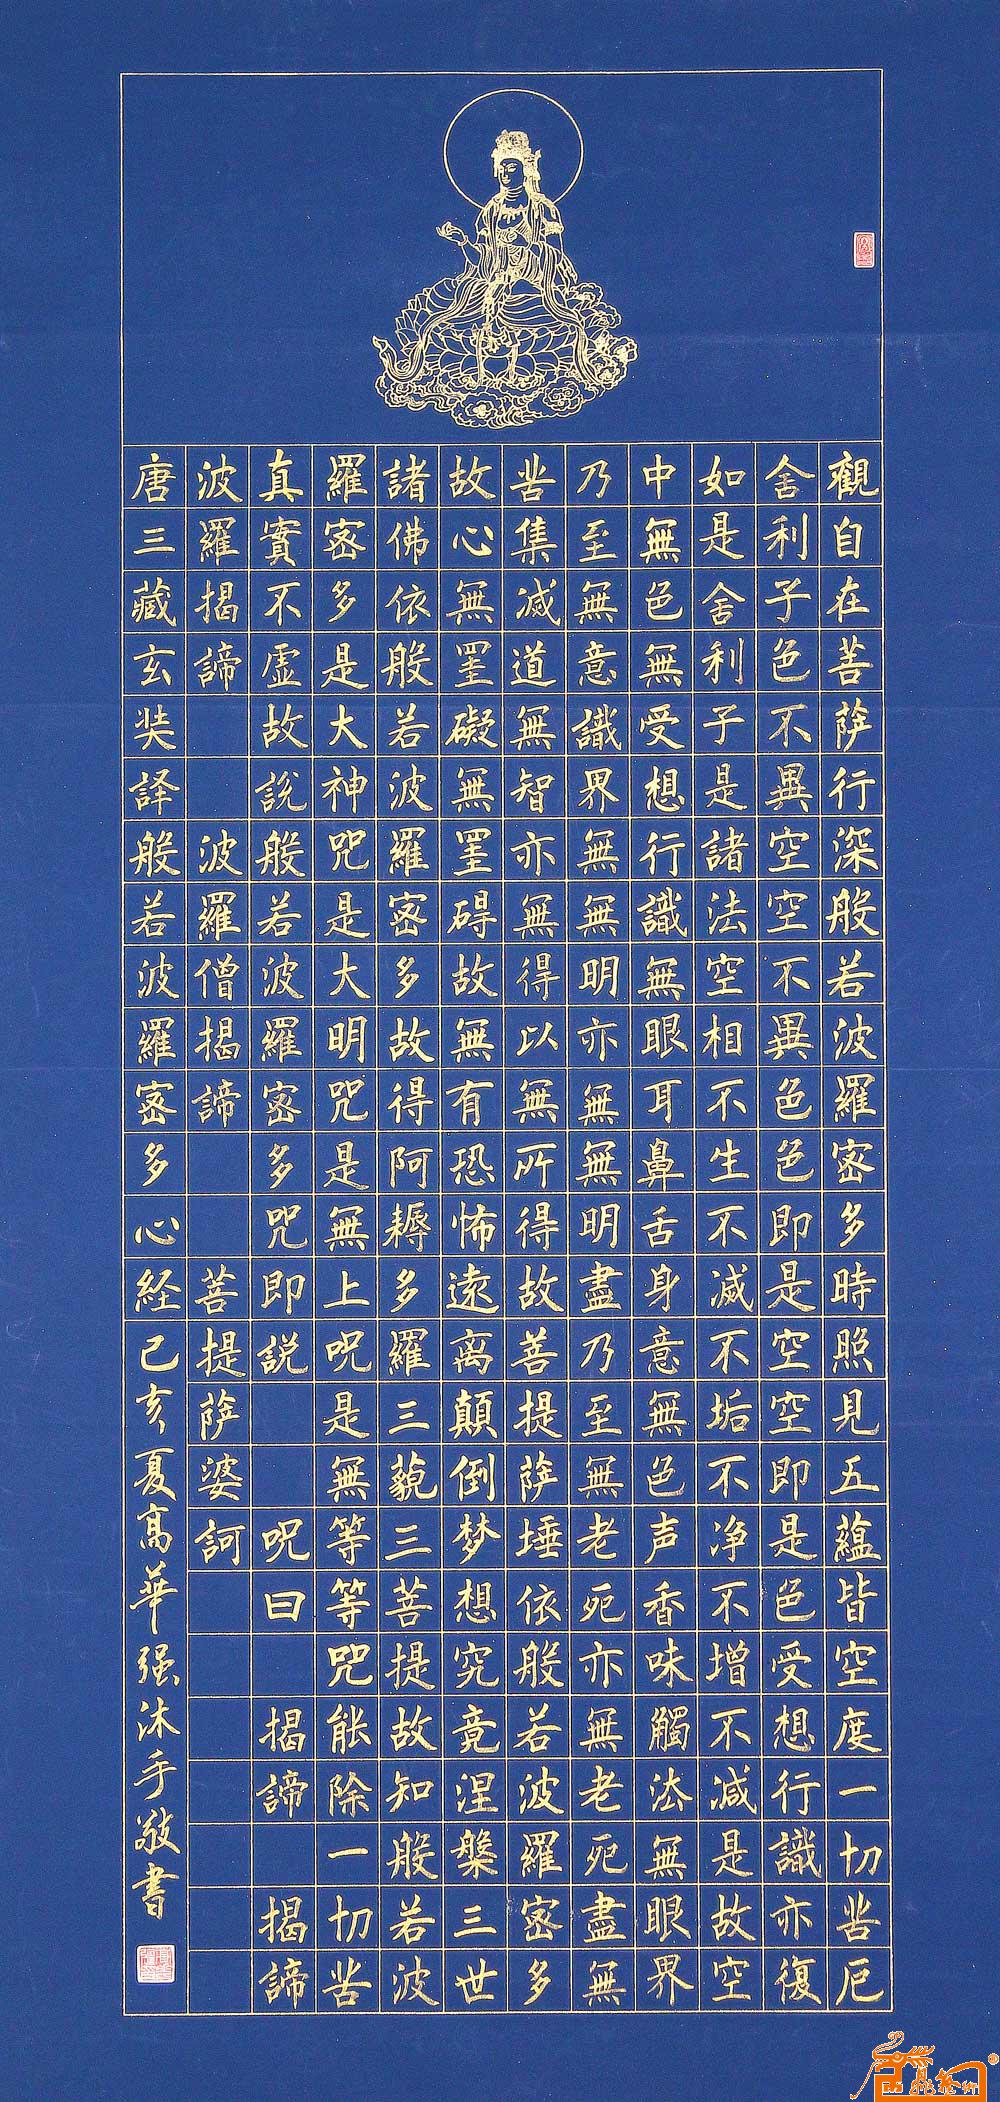 觀自在菩薩行深般若波羅密多時照見五蘊皆空度一切苦厄
舍利子色不異空空不異色色即是空空即是色受想行識亦復
如是舍利子是諸法空相不生不滅不垢不净不增不减是故空
中無色無受想行識無眼耳鼻舌身意無色声香味觸法無眼界
乃至無意識界無無明亦無無明盡乃至無老死亦無老死盡無
苦集滅道無智亦無得以無所得故菩提薩埵依般若波羅密多
故心無罣礙無罣碍故無有恐怖遠离顛倒梦想究竟涅槃三世
諸佛依般若波羅密多故得阿耨多羅三藐三菩提故知般若波
羅密多是大神咒是大明咒是無上呪是無等等咒能除一切苦
真實不虛故說般若波羅密多咒即説 呪曰 揭諦 揭諦
波羅揭諦 波羅僧揭諦 菩提薩婆訶
唐三藏玄奘譯般若波羅密多心経己亥夏高華强沐手敬書